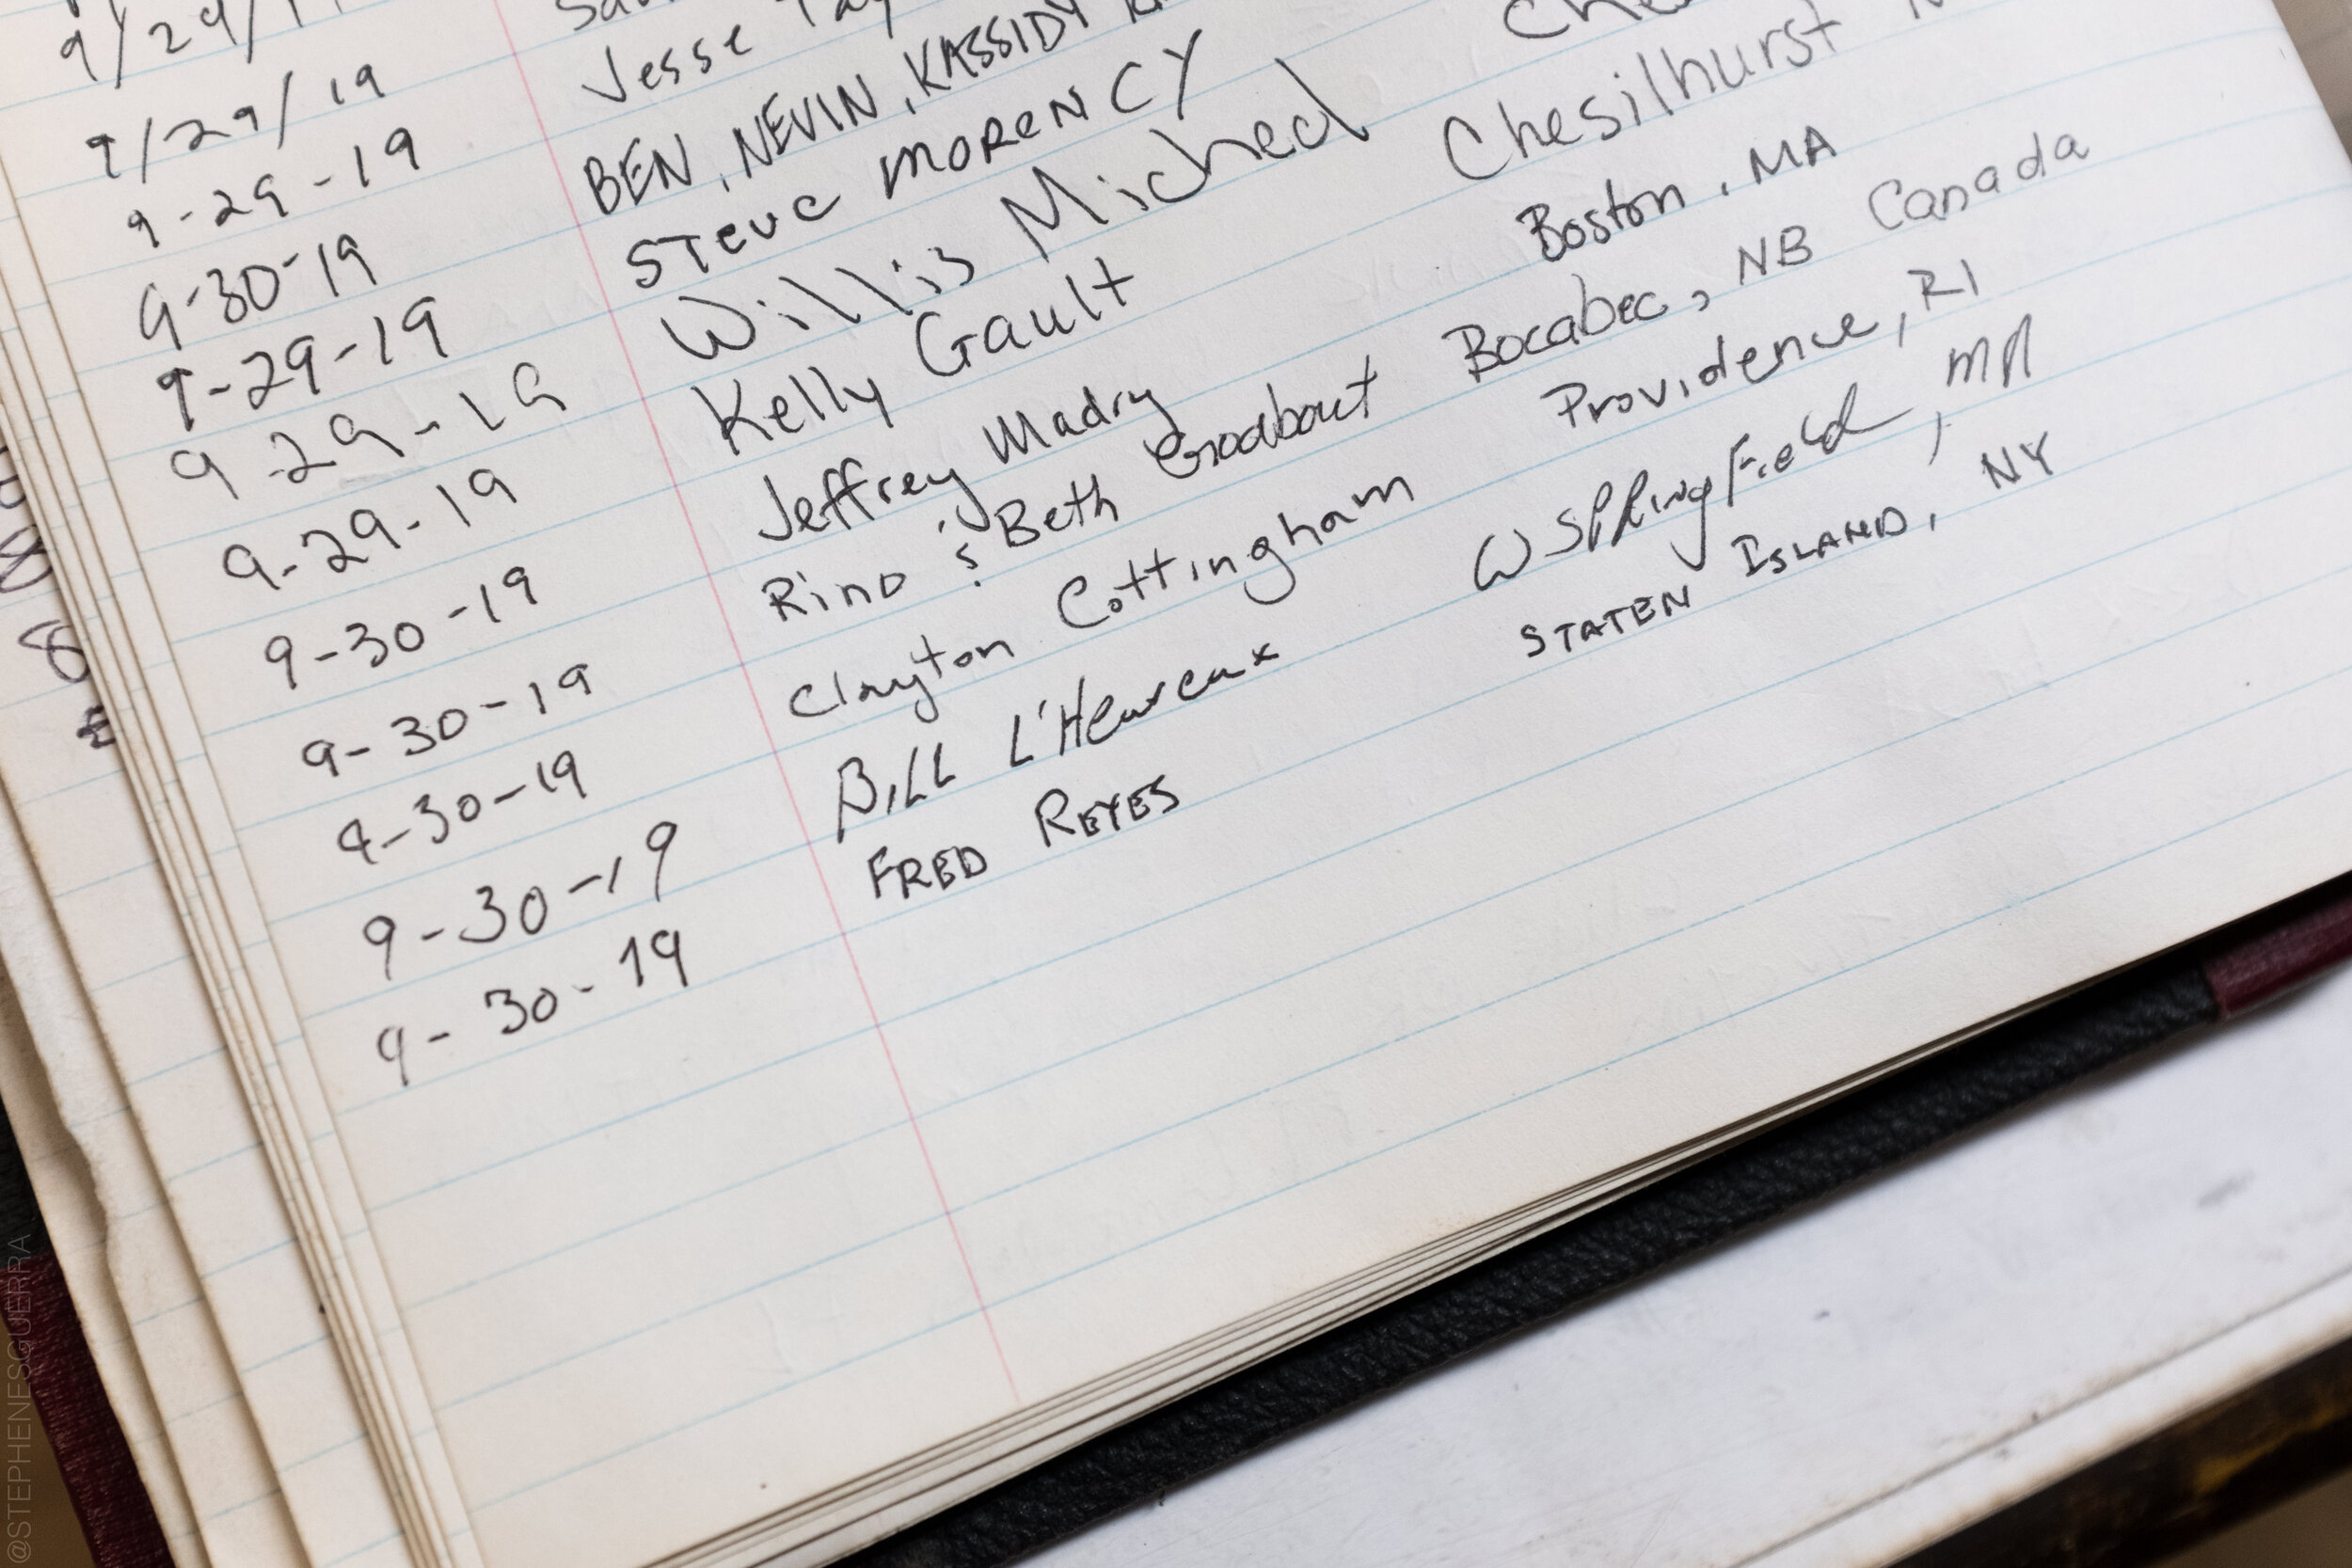 9/29/19
9-29-19 Jesse
9-30-19 BEN, NEVIN, KASSIDY
9-29-19 STEVE MORENCY
9-29-19 Willis
9-29-19 Kelly Gault Chesilhurst
9-30-19 Jeffrey Madry Boston, MA
9-30-19 Rino & Beth Godbout Bocabec, NB Canada
9-30-19 Clayton Cottingham Providence, RI
9-30-19 Bill L'Heureux W Springfield, MA
9-30-19 FRED REYES STATEN ISLAND, NY
@STEPHENESGUERRA